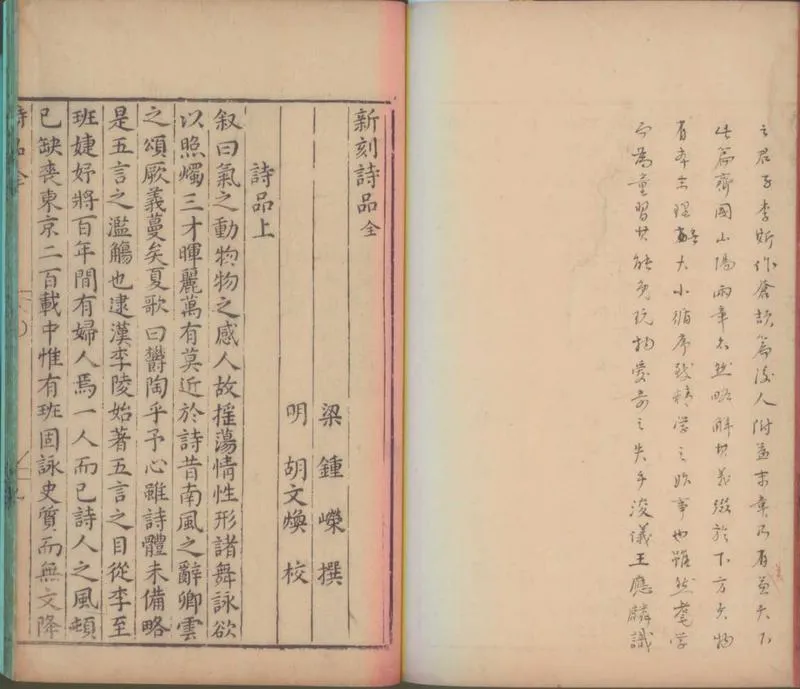 之君子李斯作蒼頡篇後人附益末章乃有兼天下
此篇齊國山陽兩章亦然略解其義綴於下方名物
有本末理無大小循序致精學之始事也雖然耄學
而為童習其能免玩物愛奇之失乎浚儀王應麟識
新刻詩品全
梁 鍾嶸 撰
明 胡文煥 校
詩品上
叙曰氣之動物物之感人故搖蕩情性形諸舞詠欲
以照燭三才暉麗萬有莫近於詩昔南風之辭卿雲
之頌厥義蔓矣夏歌曰欝陶乎予心雖詩體未備略
是五言之濫觴也逮漢李陵始著五言之目從李至
班婕妤將百年間有婦人焉一人而已詩人之風頓
已缺喪東京二百載中惟有班固詠史質而無文降
詩品全